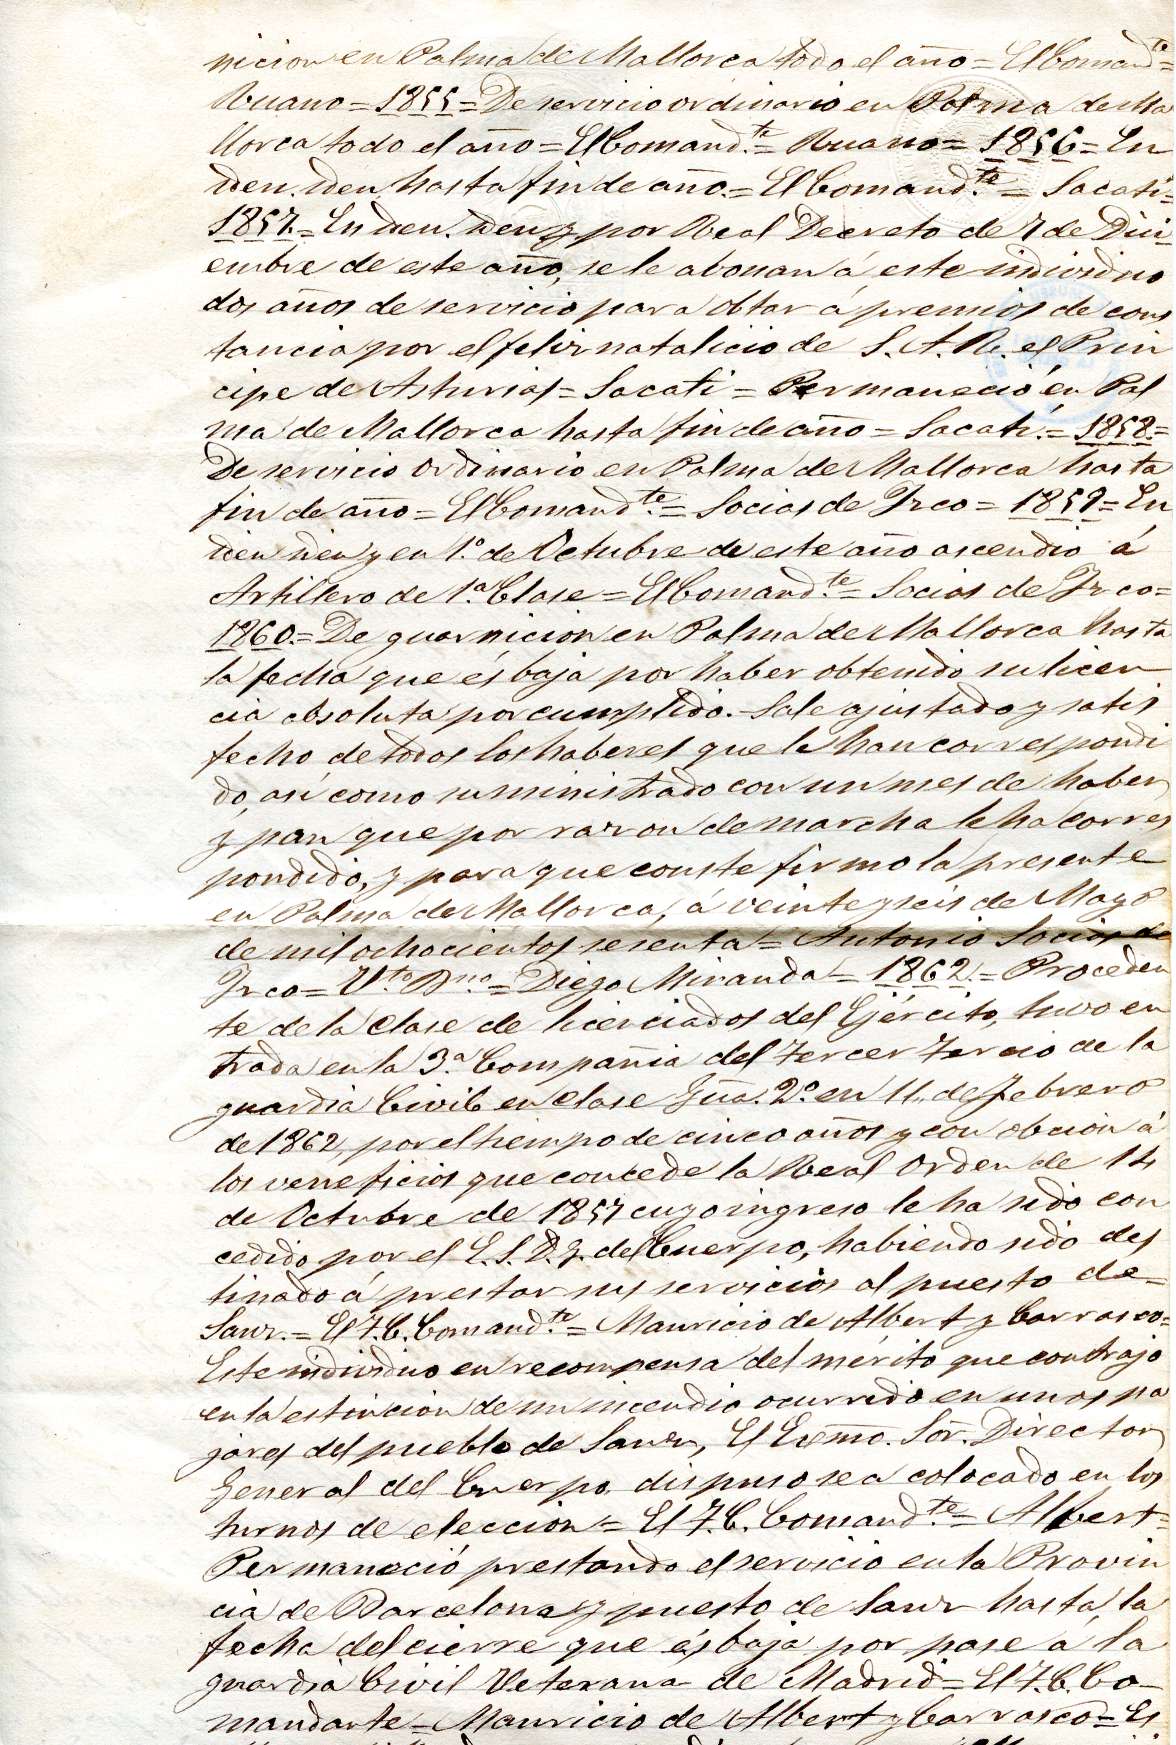 nicion en Palma de Mallorca todo el año = El Comand.te =
Ruano = 1855 = De servicio ordinario en Palma de Ma
llorca todo el año = El Comand.te = Ruano = 1856 = En
iden. iden hasta fin de año. = El Comand.te = Sacati =
1857. = En iden. iden y por Real Decreto de 7 de Dici
embre de este año, se le abonan á este individuo
dos años de servicio para obtar á premios de cons
tancia por el feliz natalicio de S. A. R. el Prin
cipe de Asturias = Sacati = Permaneció en Pal
ma de Mallorca hasta fin de año = Sacati. = 1858. =
De servicio ordinario en Palma de Mallorca hasta
fin de año = El Comand.te = Socias de Frco = 1859 = En
iden iden y en 1.º de Octubre de este año ascendio á
Artillero de 1.a Clase = El Comand.te = Socias de Frco =
1860. = De guarnicion en Palma de Mallorca hasta
la fecha que és baja por haber obtenido su licen
cia absoluta por cumplido. Sale ajustado y satis
fecho de todos los haberes que le han correspondi
do, asi como suministrado con un mes de haber
y pan que por razon de marcha le ha corres
pondido, y para que conste firmo la presente
en Palma de Mallorca, á veinte y seis de Mayo
de mil ochocientos sesenta = Antonio Socias de
Frco = V.to B.no = Diego Miranda = 1862. = Proceden
te de la clase de licenciados del Ejército, tuvo en
trada en la 3.a Compañia del tercer Tercio de la
guardia Civil en clase Gũa. 2.º en 11 de Febrero
de 1862, por el tiempo de cinco años y con obcion á
los veneficios que concede la Real Orden de 14
de Octubre de 1857 cuyo ingreso le ha sido con
cedido por el E. S. D. G. del Cuerpo, habiendo sido des
tinado á prestar sus servicios al puesto de =
Sanz. = El T. C. Comand.te = Mauricio de Albert y Carrasco =
Este individuo en recompensa del mérito que contrajo
en la estincion de un incendio ocurrido en unos pa
jares del pueblo de Sanz, El Exmo. Sór. Director
General del Cuerpo dispuso sea colocado en los
turnos de eleccion = El T. C. Comand.te = Albert =
Permaneció prestando el servicio en la Provin
cia de Barcelona y puesto de Sanz hasta la
fecha del cierre que és baja por pase á la
guardia Civil Veterana de Madrid = El T. C. Co-
mandante = Mauricio de Albert y Carrasco = Es